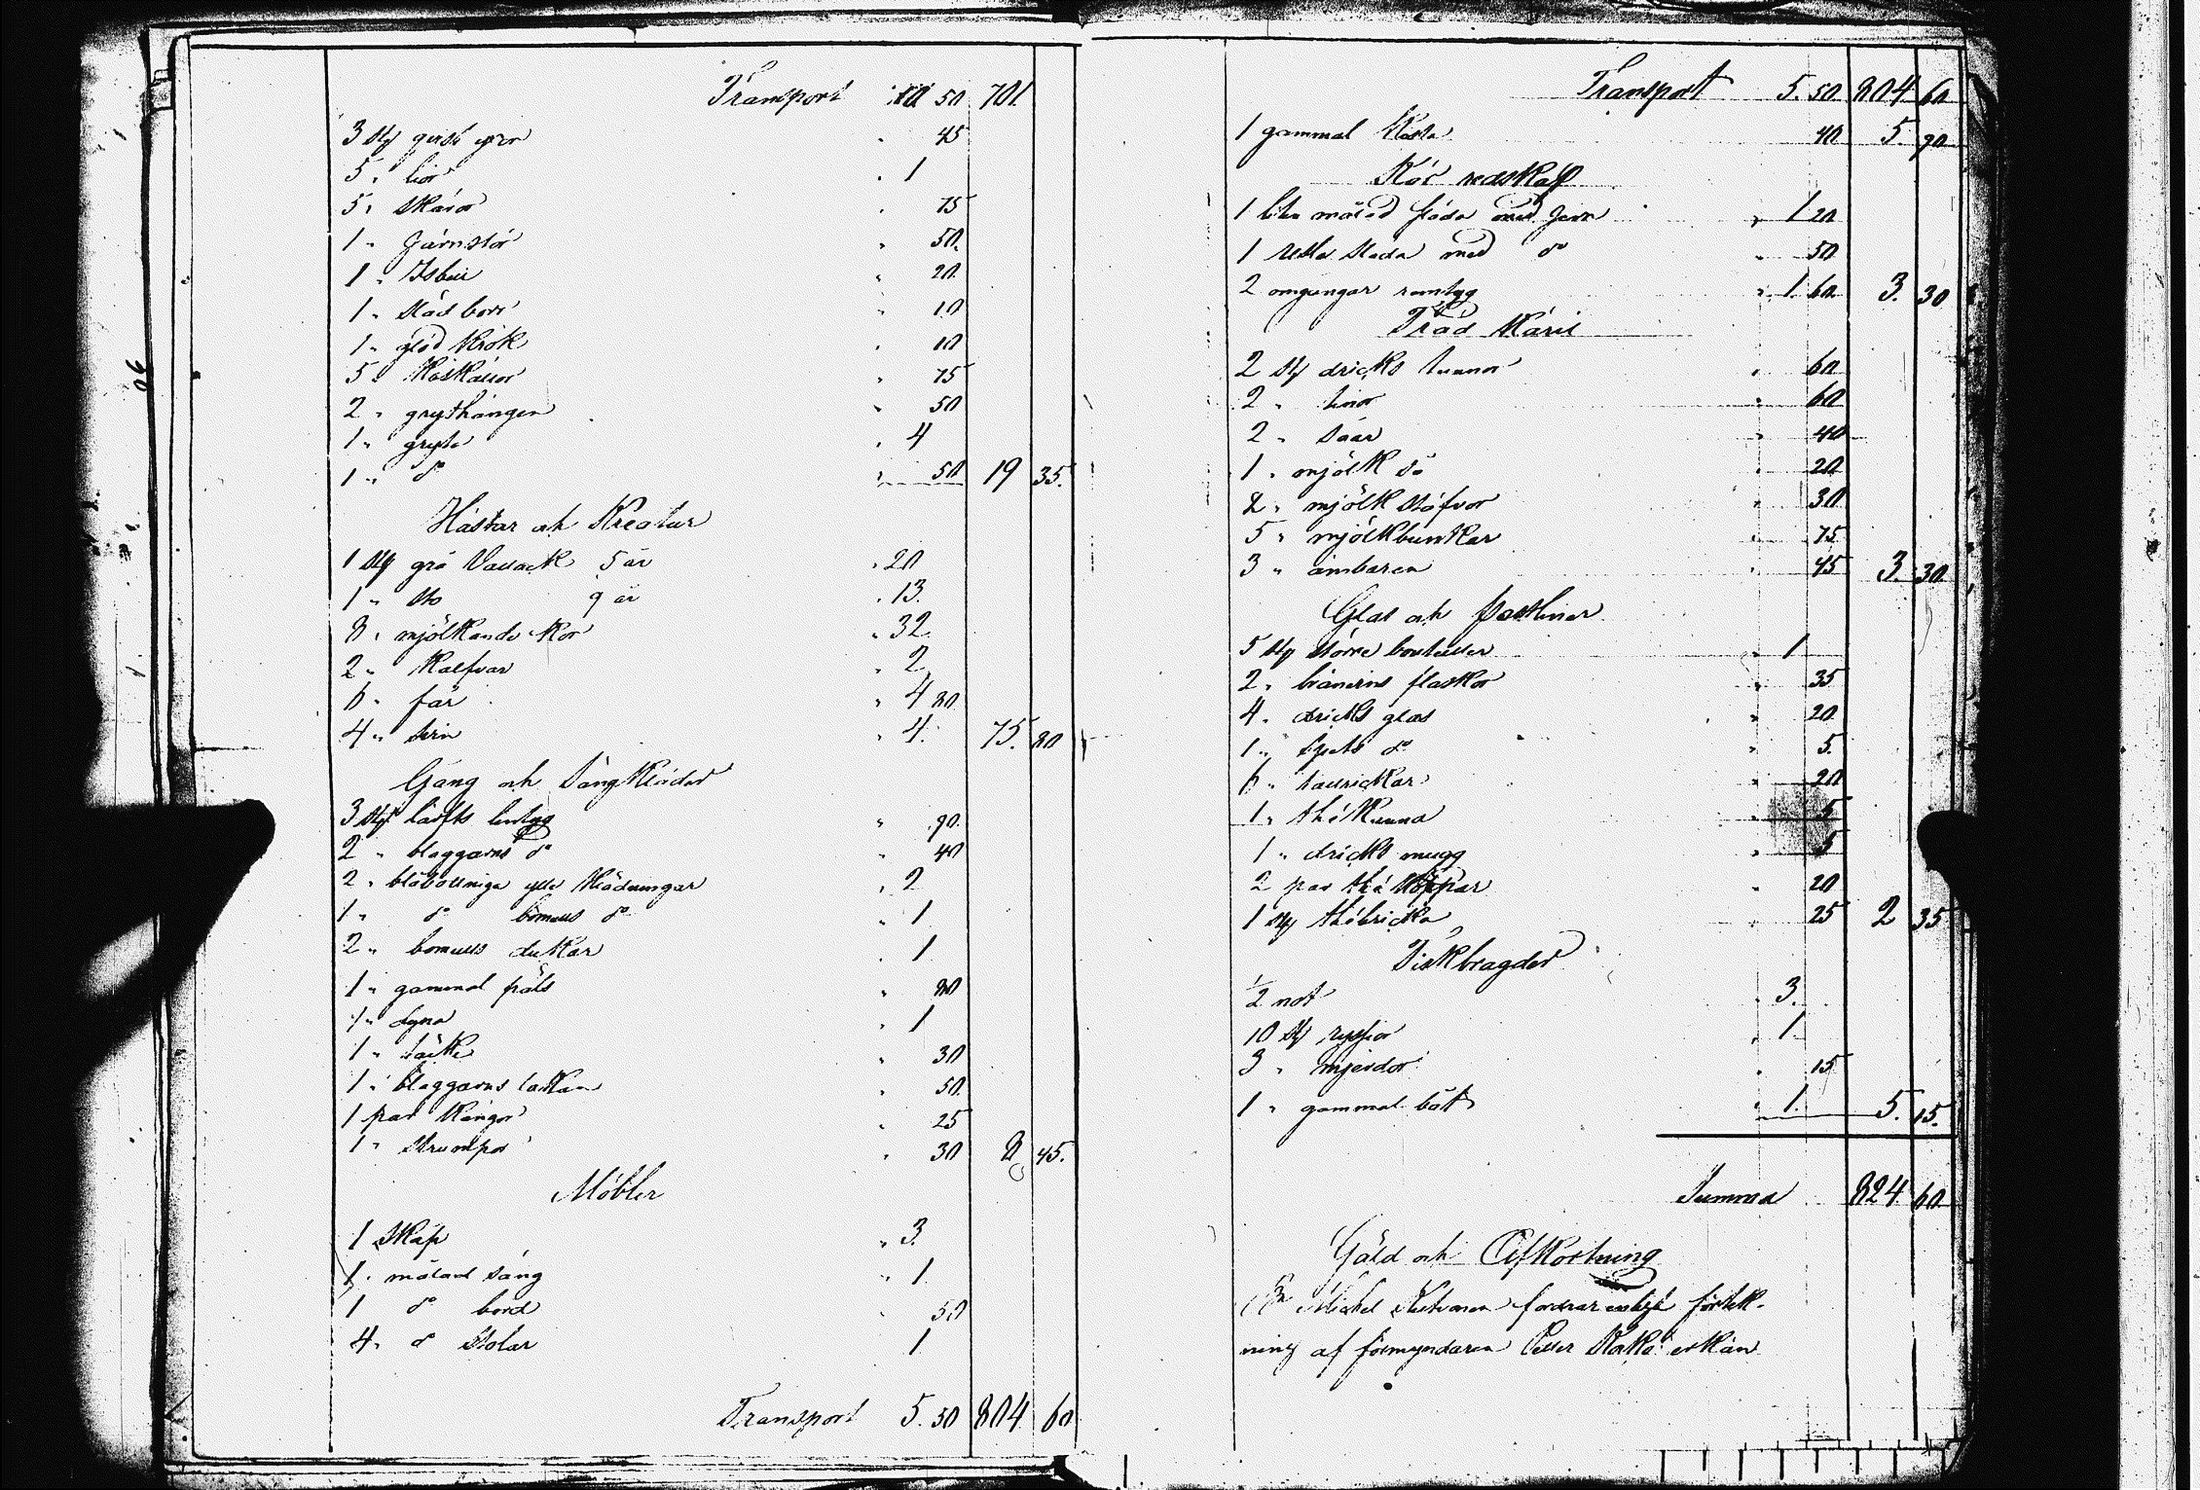 Transport 10 50 701.
3 st . 45
5 " liar . 1
5 " skäror . 75
1 " Järnstör . 50.
1 " Isbill . 20.
1 " städ borr . 10
1 " glöd krok . 10
5 " . 75
2 " grythängen . 50
1 " gryta . 4
1 " do . 50 19 35.
Hästar och Kreatur
1 st grå Vallack 5 år . 20
1 " sto 9 år . 13.
8 " mjölkande kor . 32.
2 " Kalfvar . 2
6 " får . 4 80
4 " svin . 4. 75. 80
Gång och Sängkläder
3 st lärfts lintyg " 90.
2 " blaggarns do " 40
2 " ylle klädningar " 2
1 " do bomulls do . 1
2 " bomulls dukar . 1
1 " gammal päls " 80
1 " dyna . 1
1 " täcke . 30
1 " blaggarns lakan . 50.
1 par kängor . 25
1 " strumpor . 30 8 45.
Möbler
1 Skåp " 3.
1 " målad säng " 1
1 do bord 50
4 " do stolar 1
Transport 5. 50 804 60
Transport 5. 50 804 60
1 gammal Kista 40 5. 90
Kör redskap
1 liten målad släda med Järn " 1 20
1 släda med do " 50
2 omgångar remtyg " 1. 60 3. 30
Träd Käril
2 st dricks tunnor " 60
2 " tinor 60
2 " såar " 40
1 " mjölk så " 20
2 " mjölk stäfvor " 30
5 " mjölkbunkar " 75
3 " ämbaren " 45 3. 30
Glas och Postliner
5 st större bouteller " 1
2 " bränvins flaskor " 35
4 " dricks glas " 20
1 " spets do " 5.
6 " tallrickar " 20
1 " thékanna " 5
1 " dricks mugg " 5
2 par thé koppar " 20
1 st thébricka " 25 2 35
Fiskbragder
1/2 not . 3.
10 st ryssior . 1.
3 " mjerdor . 15
1 " gammal båt . 1. 5. 15.
Summa 824. 60
Gäld och Afkortning
Michel fordrar enligt förtek-
ning af förmyndaren Petter erkän